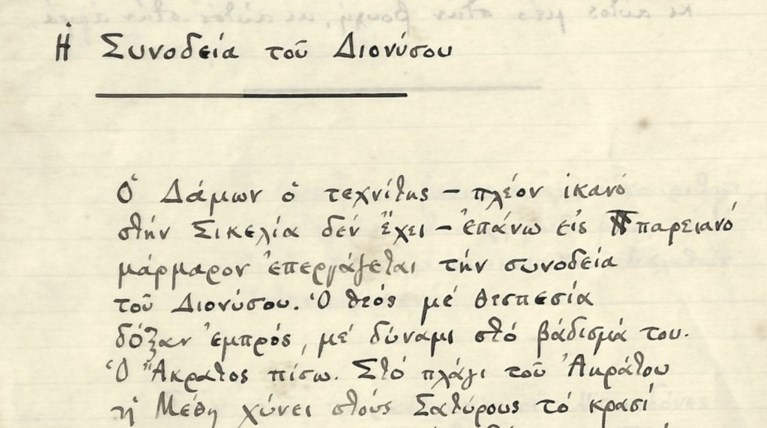 Ἡ Συνοδεία τοῦ Διονύσου
Ὁ Δάμων ὁ τεχνίτης – πλέον ἱκανό
στήν Σικελία δέν ἔχει – ἐπάνω εἰς παρειανό
μάρμαρον ἐπεργάζεται τήν συνοδεία
τοῦ Διονύσου. Ὁ θεός μέ θεσπεσία
δόξαν ἐμπρός, μέ δύναμι στό βάδισμά του.
Ὁ Ἄκρατος πίσω. Στό πλάγι τοῦ Ἀκράτου
ἡ Μέθη χύνει στούς Σατύρους τό κρασί